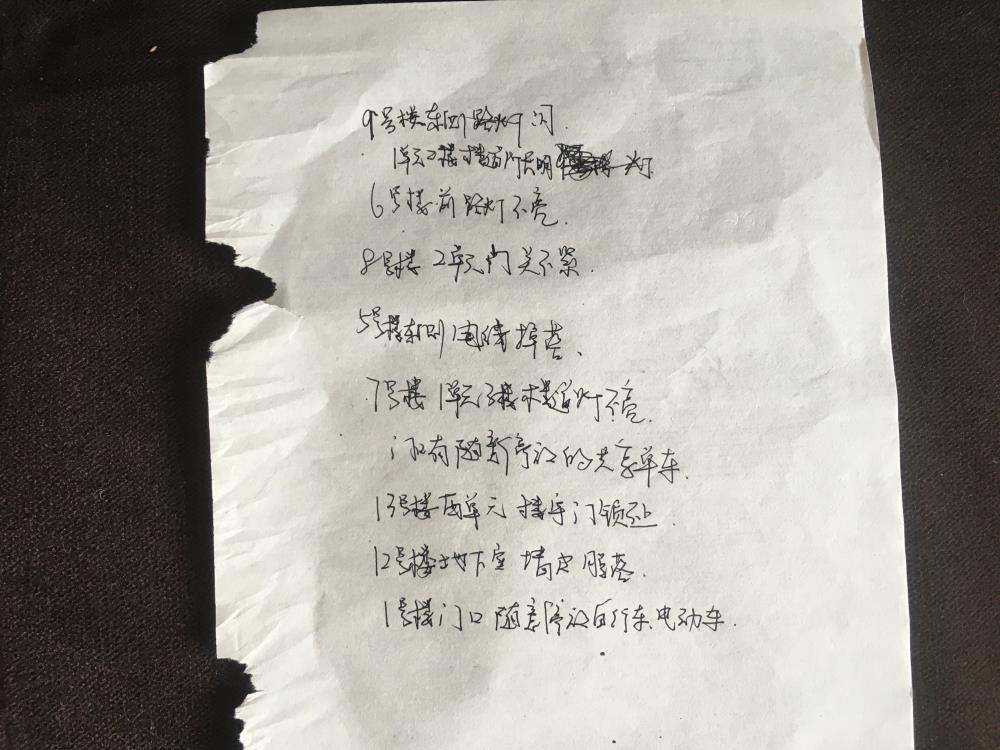 9号楼东侧路灯闪.
1单元2楼楼道灯长明
6号楼前路灯不亮.
8号楼 2单元门关不紧.
5号楼东侧电线掉落、
7号楼 1单元3楼楼道灯不亮.
门口有随意停放的共享单车.
13号楼西单元 楼宇门锁不上
12号楼地下室 墙皮脱落.
1号楼门口 随意停放自行车、电动车.